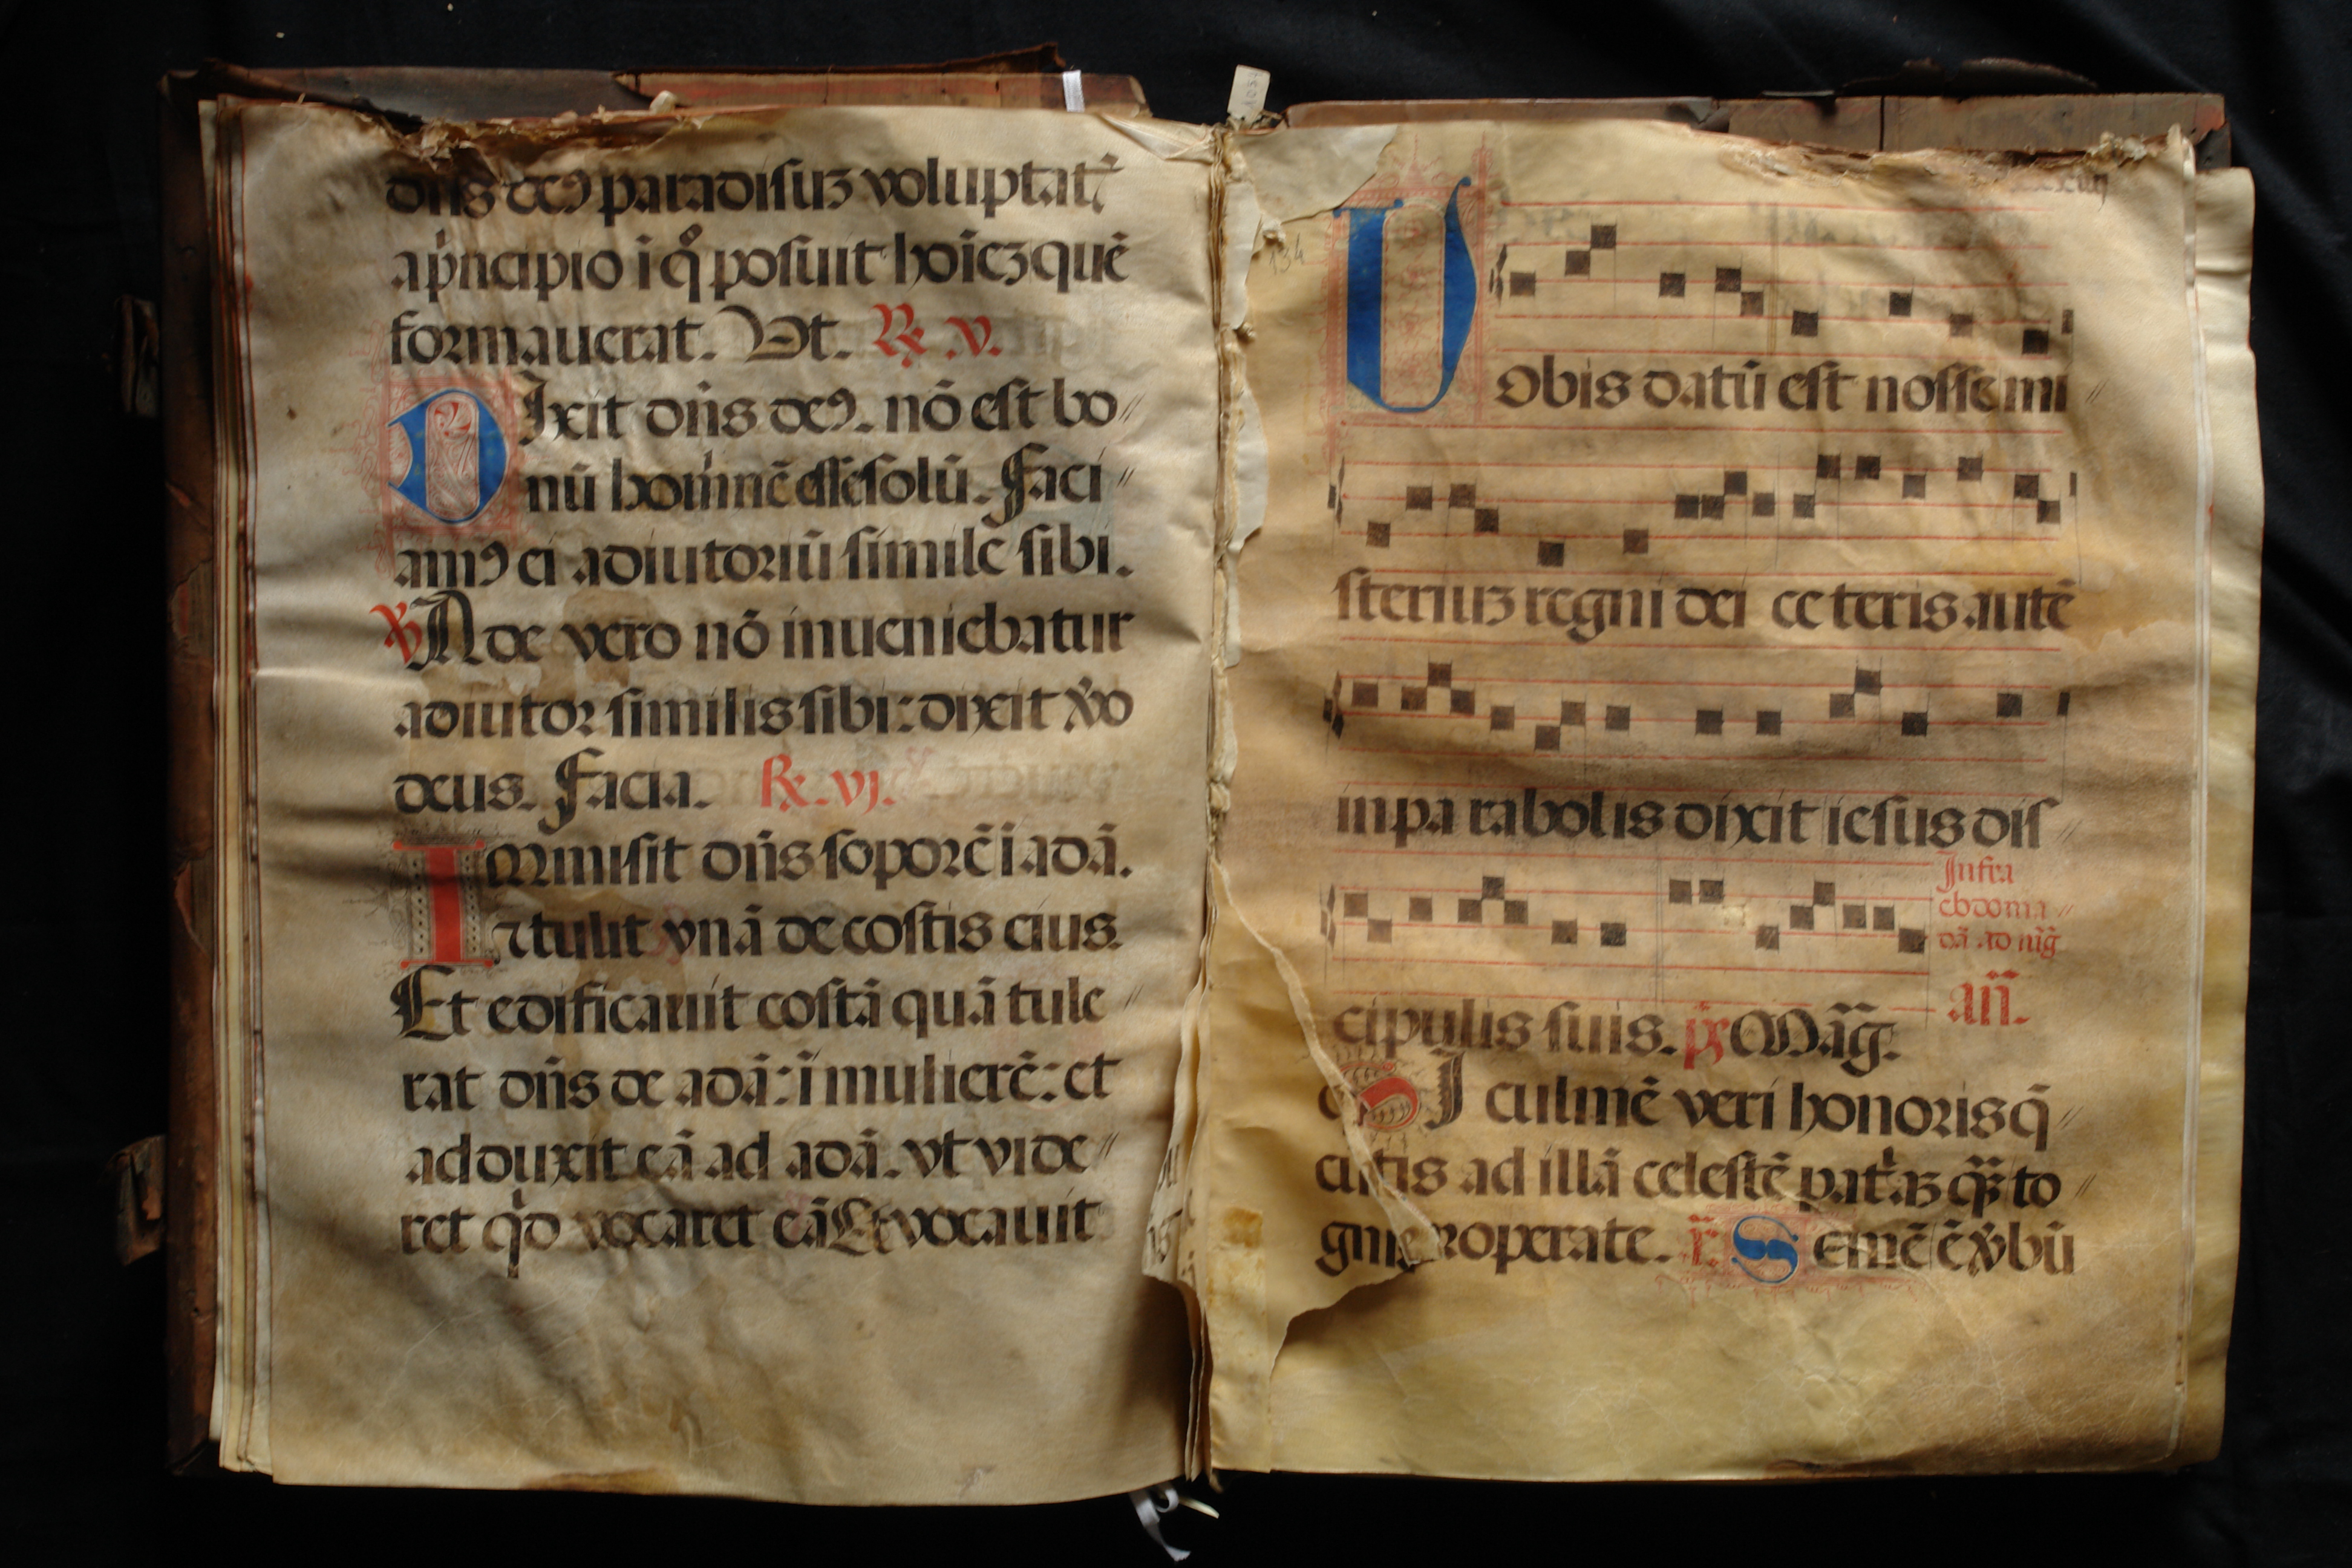 dn̄s deꝰ paradisuȝ voluptat᷒
a pͥncipio ī qͦ posuit hoīeȝ quē
formauerat. Vt. ℟. v.
DIxit dn̄s deꝰ. nō est bo
nū hominē esse solū. Faci
amꝰ ei adiutoriū similē sibi.
℣ Ade vero nō inueniebatur
adiutor similis sibi: dixit v̊o
deus. Facia. ℟. vj.
IMmisit dn̄s soporē ī adā.
⁊ tulit vnā de costis eius.
Et edificauit costā quā tule
rat dn̄s de adā: ī mulierē: et
adduxit eā ad adā. vt vide
ret qͥd vocaret eā Et vocauit
134
VObis datū est nosse mi
steriuȝ regni dei ceteris autē
in parabolis dixit iesus dis
cipulis suis. ps Māg̃.
Infra
ebdoma
dā ad m̄g̃
an̄.
SI culmē veri honoris q̄
ritis ad illā celestē patͥaȝ q̄ȝ to
properate. Semē ē v̊bū